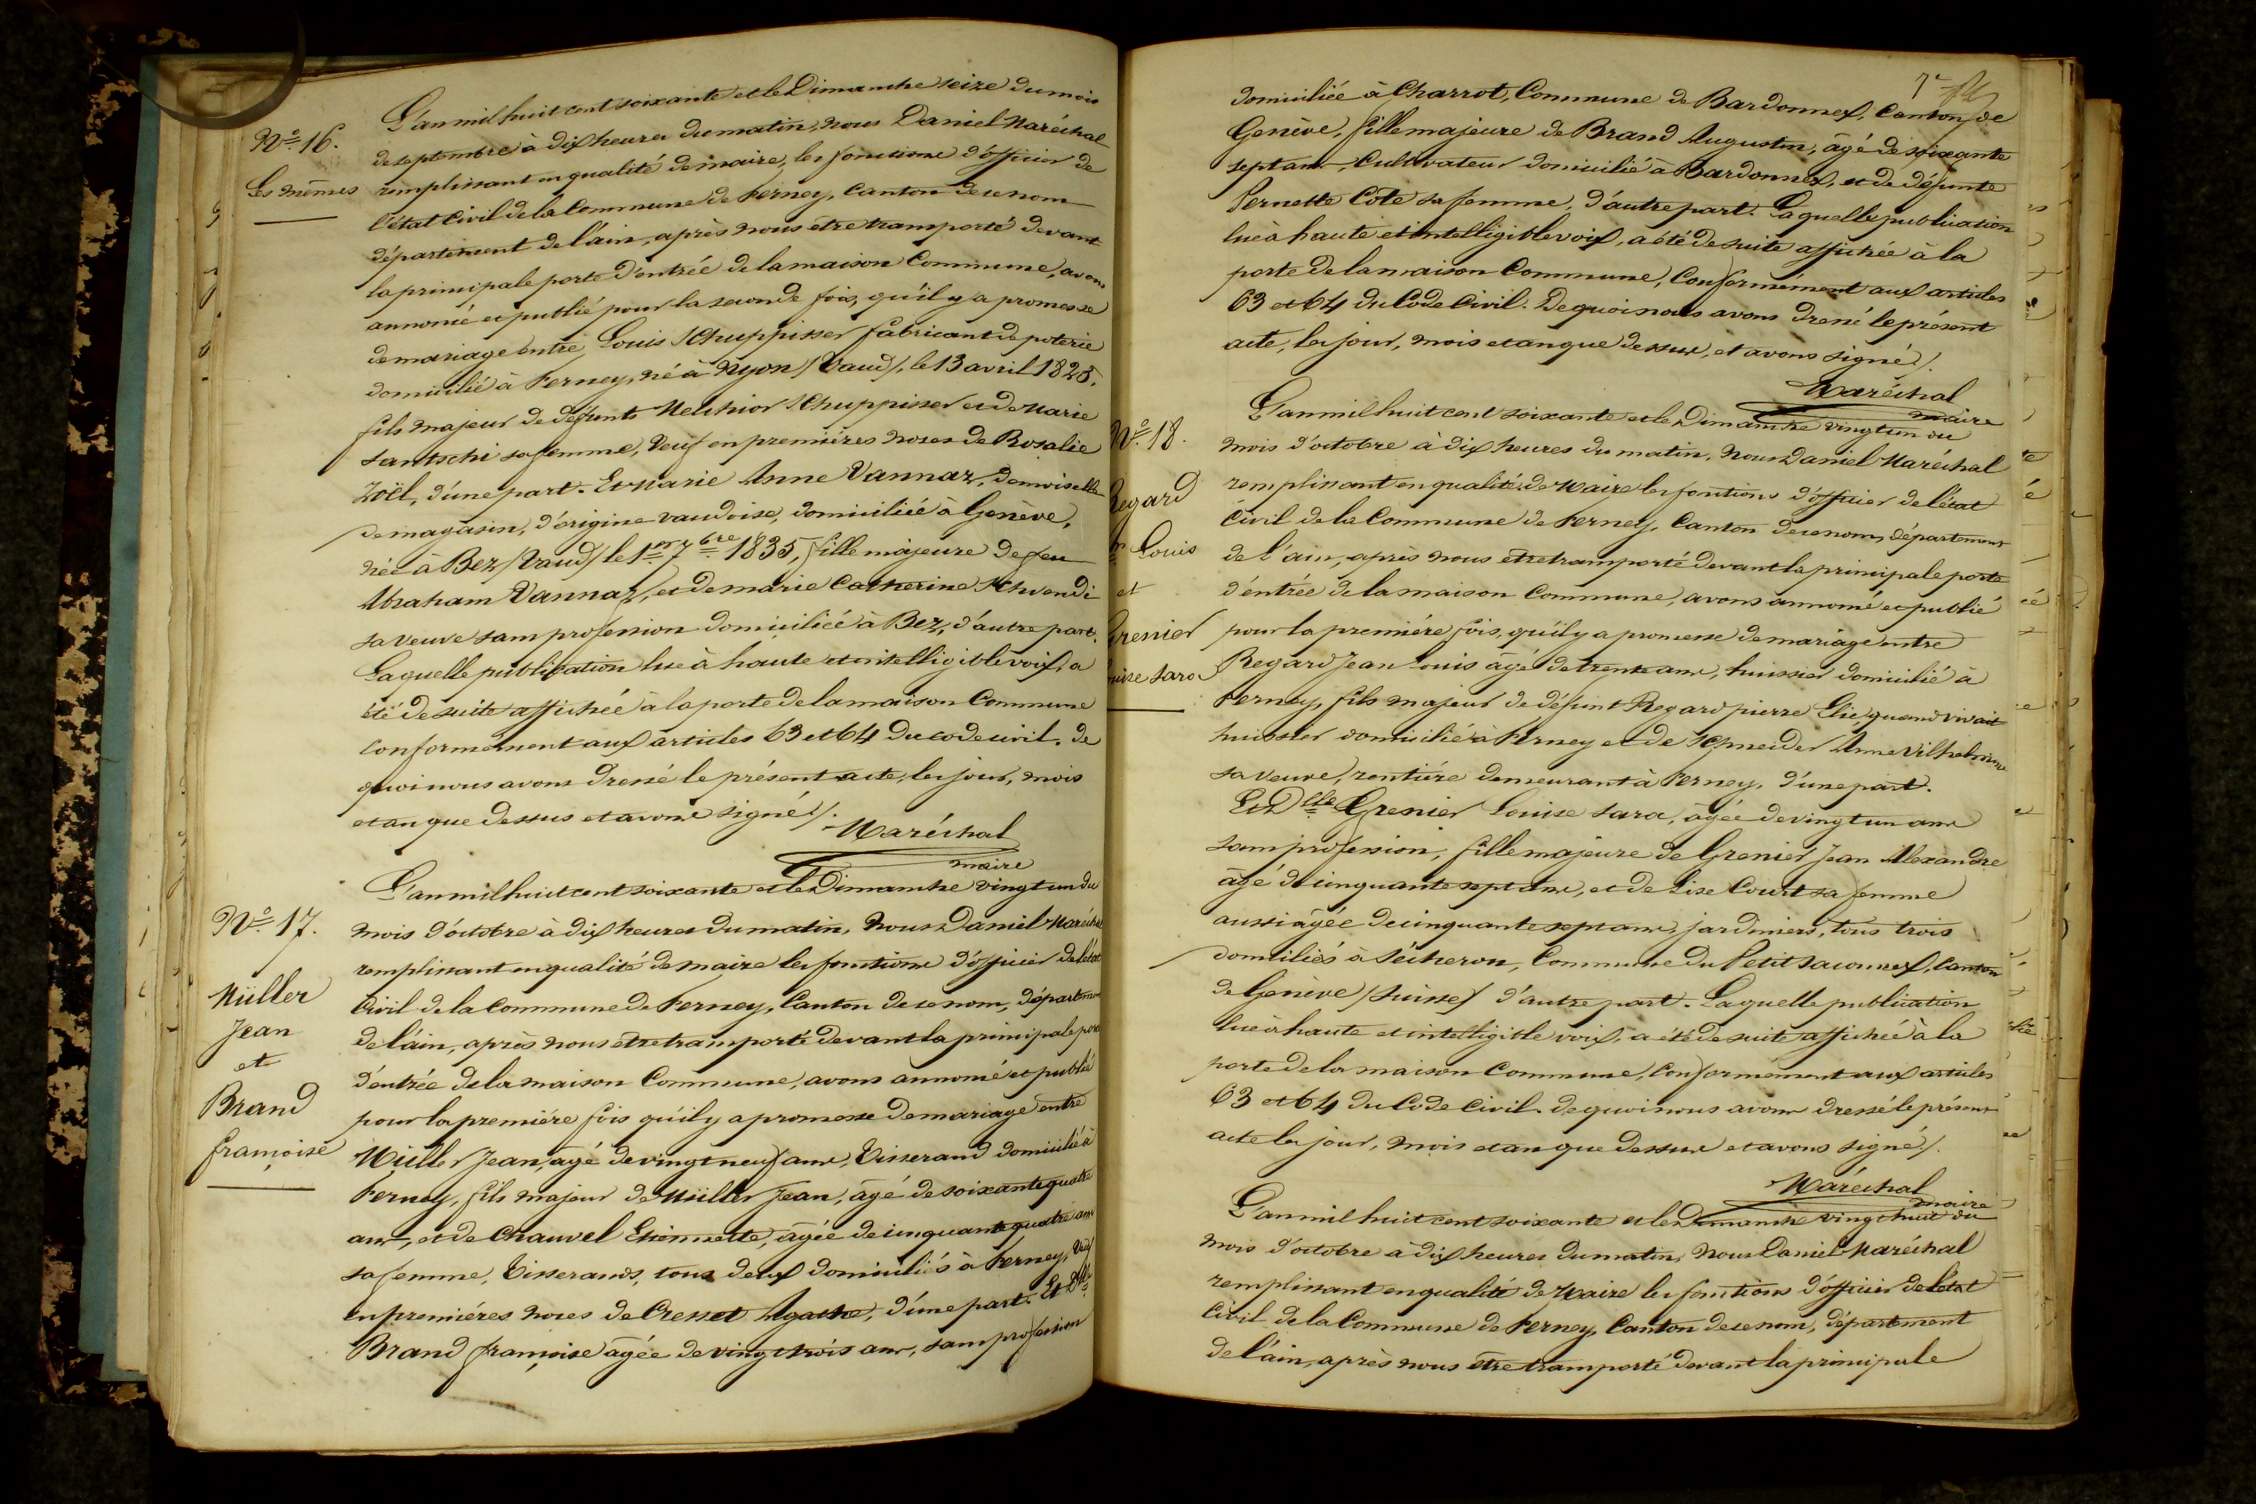 Nº 16.
Les mêmes
L'an mil huit cent soixante et le Dimanche seize du mois
de septembre à dix heures du matin, nous Daniel Maréchal
remplissant en qualité de maire, les fonctions d'officier de
l'état Civil de la Commune de Ferney, Canton de ce nom
département de l'ain, après nous être transporté devant
la principale porte d'entrée de la maison Commune, avons
annoncé et publié pour la seconde fois, qu'il y a promesse
de mariage entre Louis Schuppisser fabricant de poterie
domicilié à Ferney, né à Nyon (Vaud), le 13 avril 1825,
fils majeur de défunt Melchior Schuppisser et de Marie
Santschi sa femme, Veuf en premières noces de Rosalie
Zoël, d'une part. Et Marie Anne Vannaz, demoiselle
de magasin, d'origine vaudoise, domiciliée à Genève,
née à Bez (Vaud) le 1er 7bre 1835, fille majeure de feu
Abraham Vannaz, et de marie Catherine Schwendi
sa veuve sans profession domiciliée à Bez, d'autre part.
Laquelle publication lue à haute et intelligible voix, a
été de suite affichée à la porte de la maison Commune
conformément aux articles 63 et 64 du code civil. de
quoi nous avons dressé le présent acte, les jour, mois
et an que dessus et avons signé /.
Maréchal
maire
Nº 17.
Müller
Jean
et
Brand
françoise
L'an mil huit cent soixante et le Dimanche vingt un du
mois d'octobre à dix heures du matin, Nous Daniel Maréchal
remplissant en qualité de maire les fonctions d'officier de l'état
Civil de la Commune de Ferney, Canton de ce nom, département
de l'ain, après nous être transporté devant la principale porte
d'entrée de la maison Commune, avons annoncé et publié
pour la première fois qu'il y a promesse de mariage entre
Müller Jean, âgé de vingt neuf ans, Tisserand domicilié à
Ferney, fils majeur de Müller Jean, âgé de soixante quatre
ans, et de Chauvel Etiennette, âgée de cinquante quatre ans
sa femme, Tisserands, tous deux domiciliés à Ferney, Veuf
en premières noces de Cresset Agathe, d'une part. Et Dlle
Brand françoise âgée de vingt trois ans, sans profession
domiciliée à Charrot, Commune de Bardonnex, Canton de
Genève, fille majeure de Brand Augustin, âgé de soixante
sept ans, Cultivateur domicilié à Bardonnex, et de défunte
Pernette Côte sa femme, d'autre part. Laquelle publication
lue à haute et intelligible voix, a été de suite affichée à la
porte de la maison Commune, Conformément aux articles
63 et 64 du Code Civil. De quoi nous avons dressé le présent
acte, les jour, mois et an que dessus, et avons signé /.
Maréchal
maire
Nº 18.
Regard
Louis
et
Grenier
Louise Sara
L'an mil huit cent soixante et le Dimanche vingt un du
mois d'octobre à dix heures du matin, Nous Daniel Maréchal
remplissant en qualité de Maire les fonctions d'officier de l'état
Civil de la Commune de Ferney, Canton de ce nom, département
de l'ain, après nous être transporté devant la principale porte
d'entrée de la maison Commune, avons annoncé et publié
pour la première fois, qu'il y a promesse de mariage entre
Regard Jean Louis âgé de trente ans, huissier domicilié à
Ferney, fils majeur de défunt Regard pierre Elie, quand vivait
huissier domicilié à Ferney et de Schneider Anne Vilhelmine
sa veuve, rentière demeurant à Ferney, d'une part.
Et Dlle Grenier Louise Sara, âgée de vingt un ans
sans profession, fille majeure de Grenier Jean Alexandre
âgé de cinquante sept ans, et de Lise Court sa femme
aussi âgée de cinquante sept ans, jardiniers, tous trois
domiciliés à Sécheron, Commune du Petit Saconnex, Canton
de Genève (Suisse) d'autre part. Laquelle publication
lue à haute et intelligible voix, a été de suite affichée à la
porte de la maison Commune, Conformément aux articles
63 et 64 du Code Civil. de quoi nous avons dressé le présent
acte les jour, mois et an que dessus et avons signé /.
Maréchal
maire
L'an mil huit cent soixante et le Dimanche vingt huit du
mois d'octobre à dix heures du matin, Nous Daniel Maréchal
remplissant en qualité de Maire les fonctions d'officier de l'état
Civil de la Commune de Ferney, Canton de ce nom, département
de l'ain, après nous être transporté devant la principale